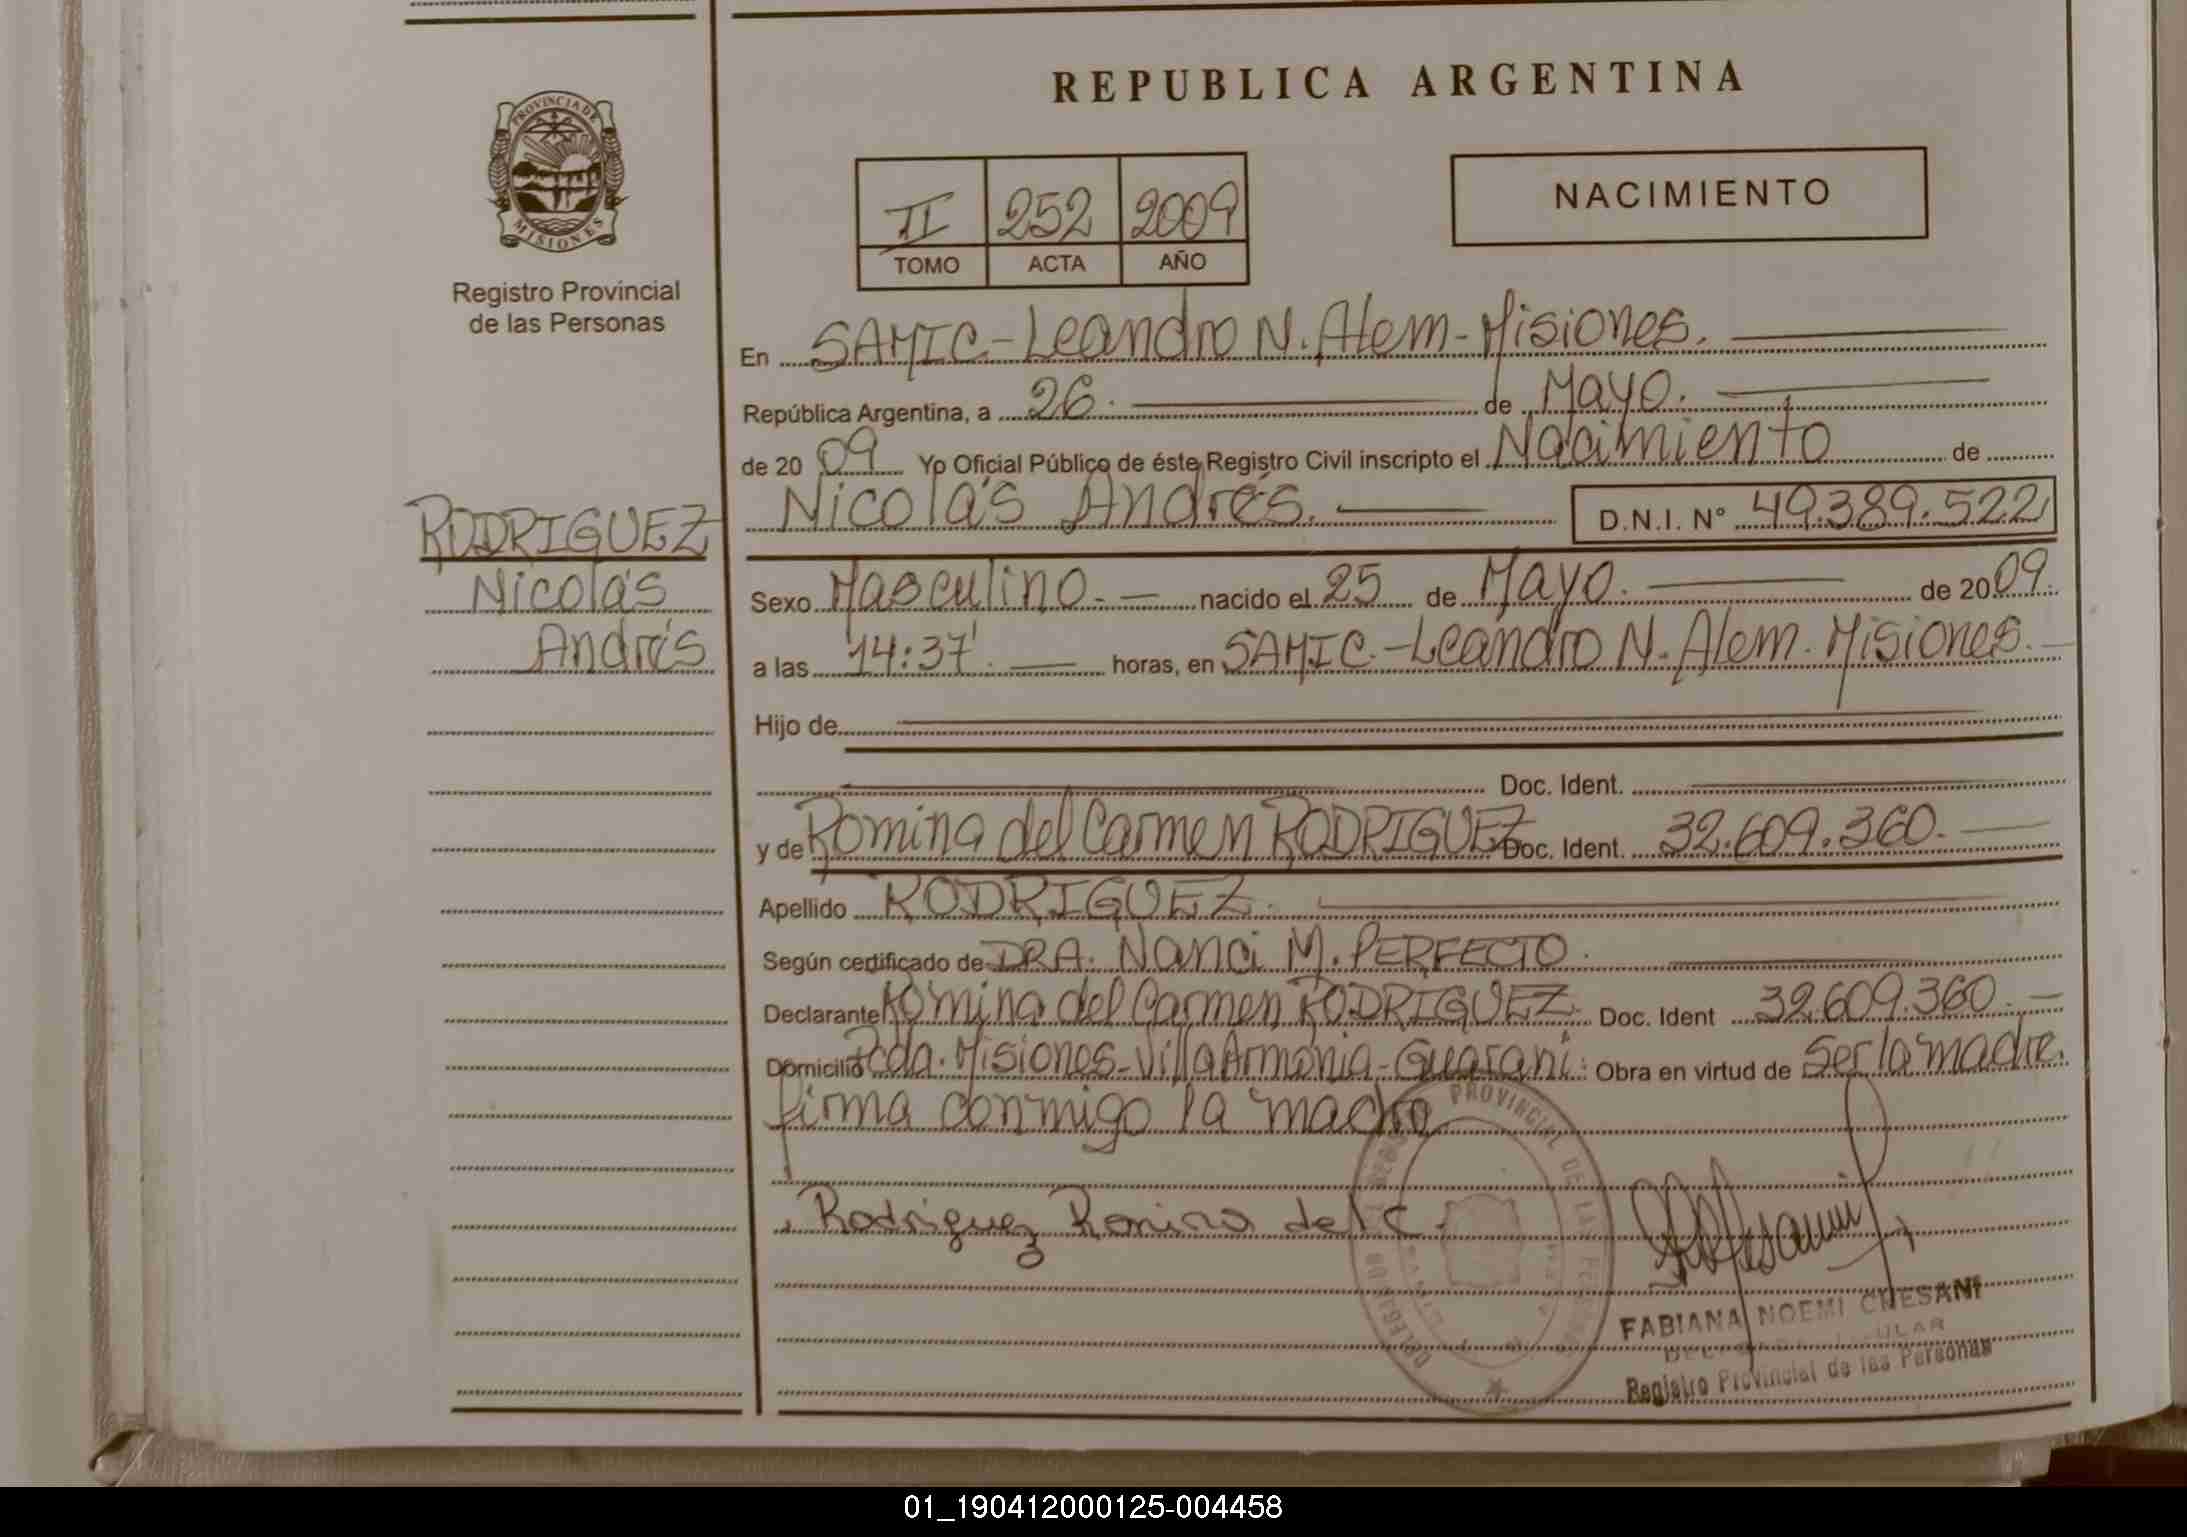 REPUBLICA ARGENTINA
PROVINCIA DE
MISIONES
Registro Provincial
de las Personas
II 252 2009
TOMO ACTA AÑO
NACIMIENTO
En SAMIC-Leandro N. Alem-Misiones.
República Argentina, a 26. de Mayo.
de 20 09 Yo Oficial Público de éste Registro Civil inscripto el Nacimiento de
Nicolás Andrés. D.N.I. Nº 49.389.522
RODRIGUEZ
Nicolás
Andrés
Sexo Masculino. nacido el 25 de Mayo. de 2009.
a las 14:37'. horas, en SAMIC.-Leandro N. Alem. Misiones.
Hijo de
Doc. Ident.
y de Romina del Carmen RODRIGUEZ Doc. Ident. 32.609.360.
Apellido RODRIGUEZ.
Según certificado de DRA. Nanci M. PERFECTO.
Declarante Romina del Carmen RODRIGUEZ Doc. Ident 32.609.360.
Domicilio Pcda. Misiones-Villa Armonia-Guarani. Obra en virtud de Ser la madre.
firma conmigo la madre
Rodriguez Romina del C.
PROVINCIAL DE LAS
FABIANA NOEMI CHESANI
Registro Provincial de las Personas
01_190412000125-004458